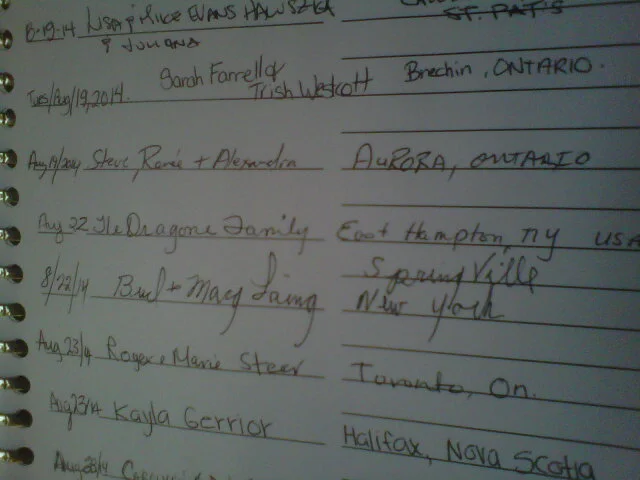 8-19-14 LISA & Mike EVANS ST. PAT'S
& JULIANA
Tues/Aug/19,2014. Sarah Farrell & Trish Westcott Brechin, ONTARIO.
Aug19/2014 Steve, Renée + Alexandra AURORA, ONTARIO
Aug 22 The Dragone Family East Hampton, NY USA
8/22/14 Bud + Mary Laing Springville
New York
Aug 23/14 Roger & Marie Steer Toronto, On.
Aug 23/14 Kayla Gerrior Halifax, Nova Scotia